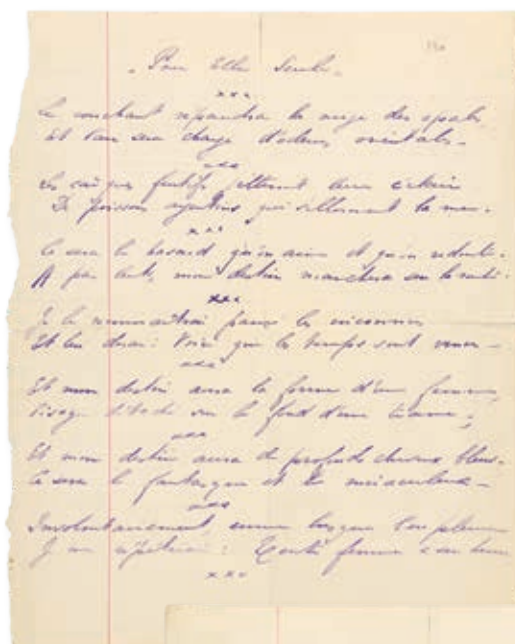 Pour Elle Seule.
xxx
Le couchant répandra la neige des opales
Et l'air sera chargé d'odeurs orientales.
xxx
Les caïques furtifs jetteront leur éclair
De poissons argentins qui sillonnent la mer.
xxx
Ce sera le hasard qu'on aime et qu'on redoute.
A pas lents, mon destin marchera sur la route.
xxx
Je le reconnaîtrai parmi les inconnus
Et lui dirai : Voici que les temps sont venus
xxx
Et mon destin aura la forme d'une femme,
sur le fond d'une
xxx
Et mon destin aura de profonds cheveux bleus.
Ce sera le fantasque et le miraculeux
xxx
Involontairement, comme lorsque l'on pleure
Je me répéterai : Toute femme a son heure
xxx